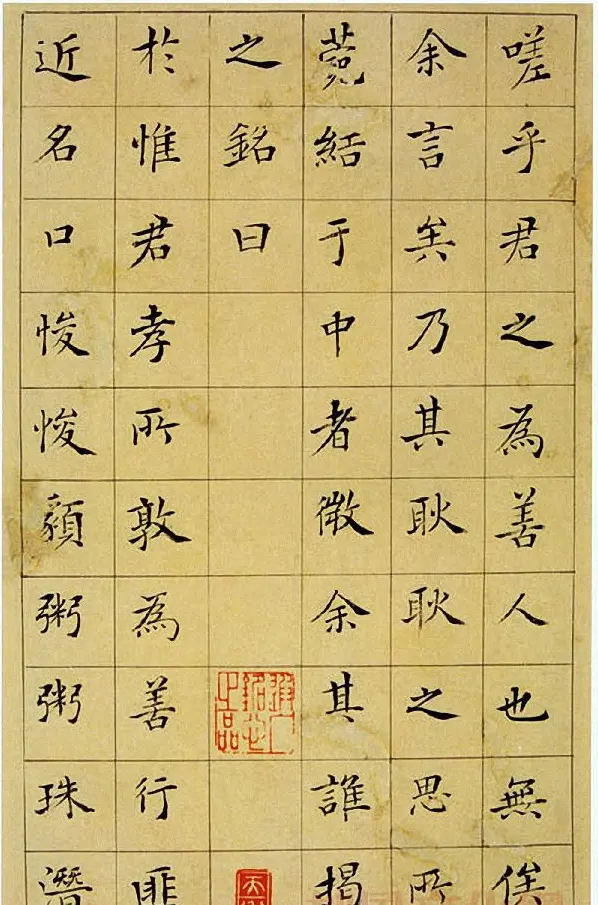 嗟乎君之為善人也無俟
余言矣乃其耿耿之思所
菀結于中者微余其誰揭
之銘曰
於惟君孝所敦為善行匪
近名口悛悛粥粥珠潛